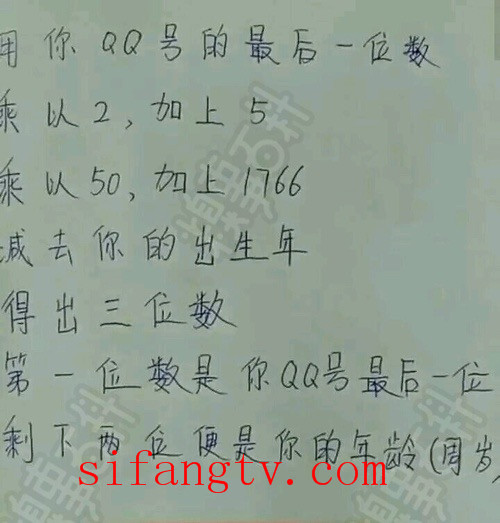 用你QQ号的最后一位数
乘以2,加上5
乘以50,加上1766
减去你的出生年
得出三位数
第一位数是你QQ号最后一位
剩下两位便是你的年龄(周岁
sifangtv.com